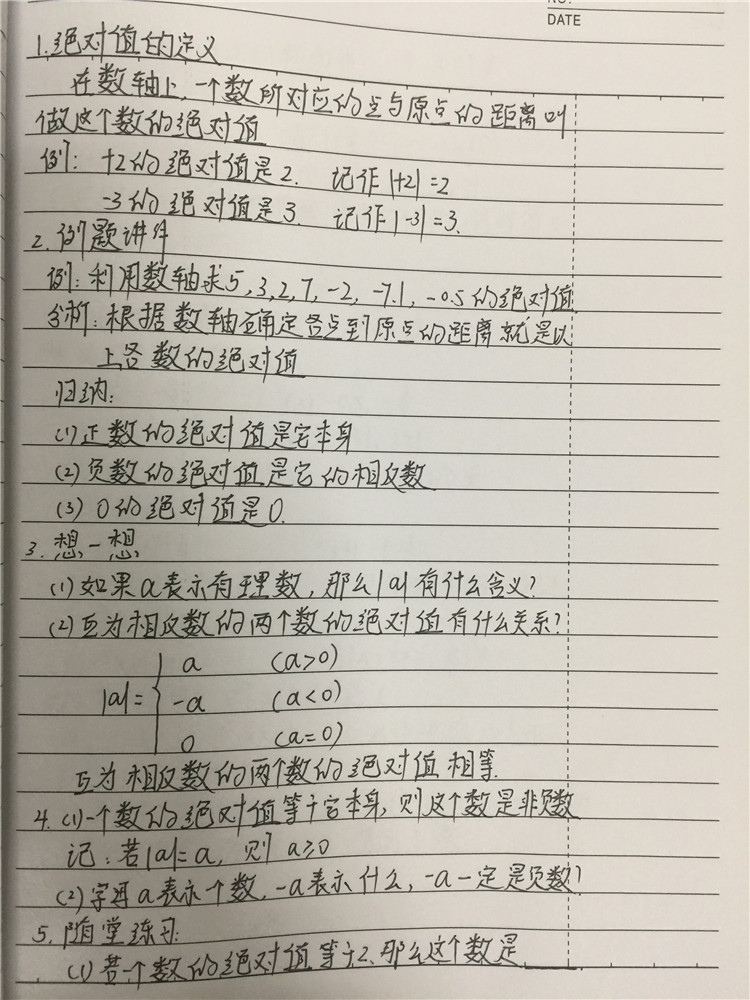 DATE
1.绝对值的定义
在数轴上,一个数所对应的点与原点的距离叫
做这个数的绝对值
例: +2的绝对值是2. 记作|+2|=2
-3的绝对值是3. 记作|-3|=3.
2.例题讲解
例:利用数轴求5,3,2,7,-2,-7.1,-0.5的绝对值.
分析:根据数轴确定各点到原点的距离就是以
上各数的绝对值
归纳:
(1)正数的绝对值是它本身
(2)负数的绝对值是它的相反数
(3) 0的绝对值是0.
3.想一想
(1)如果a表示有理数,那么|a|有什么含义?
(2)互为相反数的两个数的绝对值有什么关系?
a (a>0)
|a|={ -a (a<0)
0 (a=0)
互为相反数的两个数的绝对值相等.
4.(1)一个数的绝对值等于它本身,则这个数是非负数
记:若|a|=a,则a≥0
(2)字母a表示一个数,-a表示什么,-a一定是负数?
5.随堂练习:
(1)若一个数的绝对值等于2,那么这个数是____